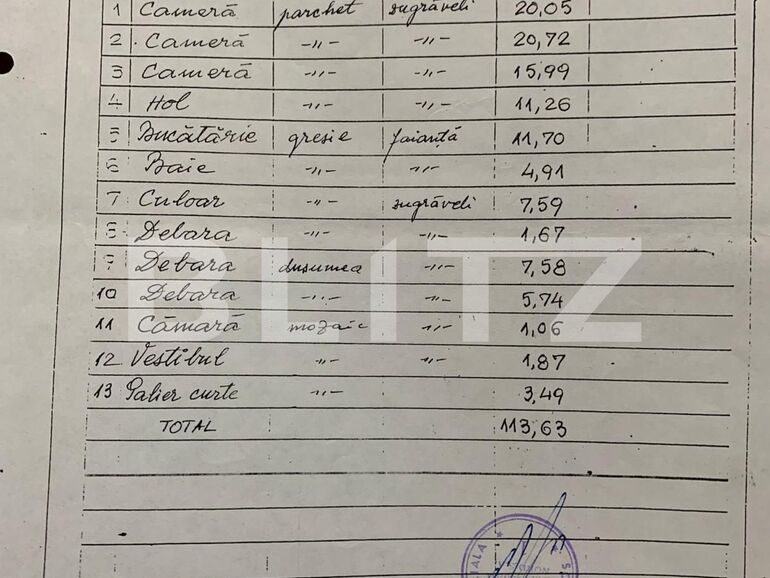 1 Cameră parchet zugrăveli 20,05
2 Cameră -〃- -〃- 20,72
3 Cameră -〃- -〃- 15,99
4 Hol -〃- -〃- 11,26
5 Bucătărie gresie faianță 11,70
6 Baie -〃- -〃- 4,91
7 Culoar -〃- zugrăveli 7,59
8 Debara -〃- -〃- 1,67
9 Debara dusumea -〃- 7,58
10 Debara -〃- -〃- 5,74
11 Cămară mozaic -〃- 1,06
12 Vestibul -〃- -〃- 1,87
13 Palier curte -〃- 3,49
TOTAL 113,63
BLITZ